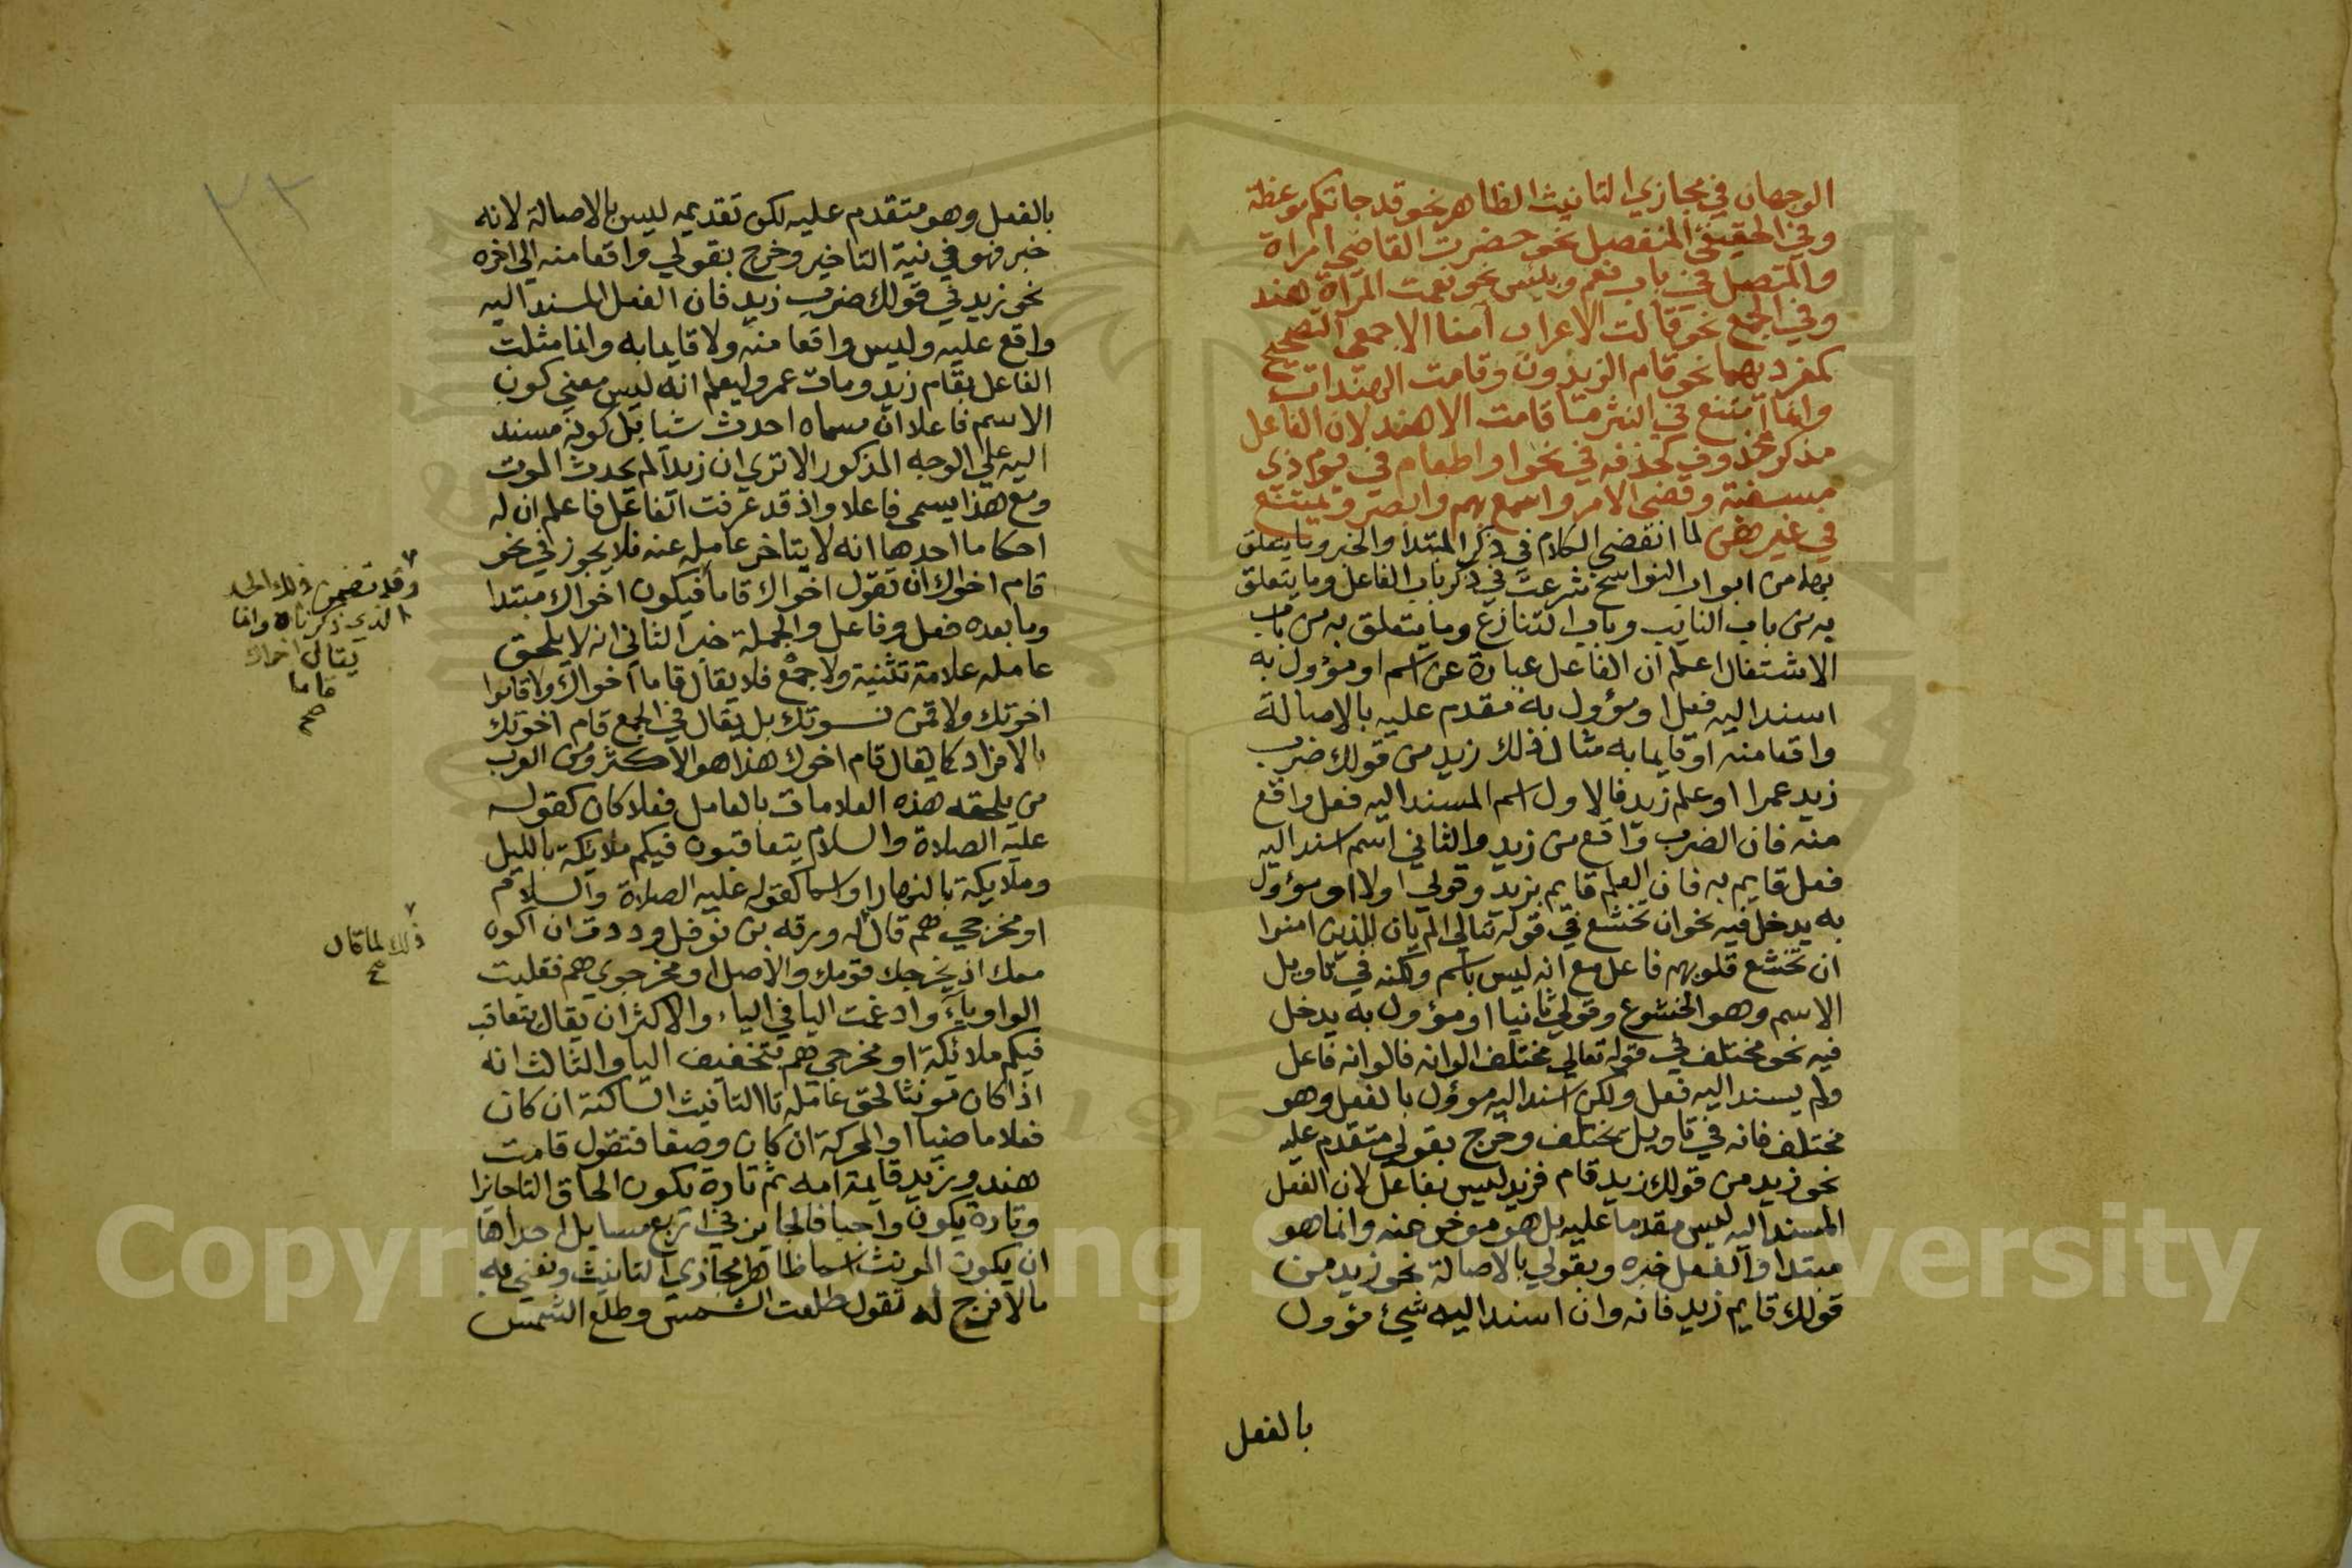 الوجهان في مجازي التانيث الظاهر نحو قد جاتكم موعظة
وفي الحقيقي المنفصل نحو حضرت القاضي امراة
والمتصل في باب نعم وبئيس نحو نعمت المراة هند
وفي الجمع نحو قالت الاعراب آمنا الاجمعي التصحيح
كمفرديهما نحو قام الزيدون وقامت الهندات
وانما امتنع في النثر ما قامت الا هند لان الفاعل
مذكر محذوف كحذفه في نحو او اطعام في يوم ذي
مسغبة وقضي الامر واسمع بهم وابصر ويمتنع
في غيرهن لما انقضي الكلام في ذكر المبتدا والخبر وما يتعلق
بهما من ابواب النواسخ شرعت في ذكر باب الفاعل وما يتعلق
به من باب النايب وباب التنازع وما يتعلق به من باب
الاشتغال اعلم ان الفاعل عبارة عن اسم او مؤول به
اسند اليه فعل او مؤول به مقدم عليه بالاصالة
واقعا منه او قايما به مثال ذلك زيد من قولك ضرب
زيد عمرا او علم زيد فالاول اسم المسند اليه فعل واقع
منه فان الضرب واقع من زيد والثاني اسم اسند اليه
فعل قايم به فان العلم قايم بزيد وقولي اولا او مؤول
به يدخل فيه نحو ان تخشع في قوله تعالي الم يان للذين امنوا
ان تخشع قلوبهم فاعل مع انه ليس باسم ولكنه في تاويل
الاسم وهو الخشوع وقولي ثانيا او مؤول به يدخل
فيه نحو مختلف في قوله تعالي مختلف الوانه فالوانه فاعل
ولم يسند اليه فعل ولكن اسند اليه مؤول بالفعل وهو
مختلف فانه في تاويل يختلف وخرج بقولي متقدم عليه
نحو زيد من قولك زيد قام فزيد ليس بفاعل لان الفعل
المسند اليه ليس مقدما عليه بل هو موخر عنه وانما هو
مبتدا والفعل خبره وبقولي بالاصالة نحو زيد من
قولك قايم زيد فانه وان اسند اليه شيئ مؤول
بالفعل
٢٣
بالفعل وهو متقدم عليه لكن تقديمه ليس بالاصالة لانه
خبر فهو في نية التاخير وخرج بقولي واقعا منه الي اخره
نحو زيد في قولك ضرب زيد فان الفعل المسند اليه
واقع عليه وليس واقعا منه ولا قايما به وانما مثلت
الفاعل بقام زيد ومات عمر وليعلم انه ليس معني كون
الاسم فاعلا ان مسماه احدث شيا بل كونه مسند
اليه علي الوجه المذكور الا تري ان زيدا لم يحدث الموت
ومع هذا يسمي فاعلا واذ قد عرفت الفاعل فاعلم ان له
احكاما احدها انه لا يتاخر عامله عنه فلا يجوز في نحو
قام اخواك ان تقول اخواك قاما فيكون اخواك مبتدا
وما بعده فعل وفاعل والجملة خبر الثاني انه لا يلحق
عامله علامة تثنية ولا جمع فلا يقال قاما اخواك ولا قاموا
اخوتك ولا قمن نسوتك بل يقال في الجمع قام اخوتك
بالافراد كما يقال قام اخوك هذا هو الاكثر ومن العرب
من يلحقه هذه العلامات بالعامل فعلا كان كقوله
عليه الصلاة والسلام يتعاقبون فيكم ملايكة بالليل
وملايكة بالنهار او اسما كقوله عليه الصلاة والسلام
او مخرجي هم قال له ورقه بن نوفل وددت ان اكون
معك اذ يخرجك قومك والاصل او مخرجوي هم فقلبت
الواو ياء وادغمت اليا في الياء والاكثر ان يقال يتعاقب
فيكم ملائكة او مخرجي هم بتخفيف اليا والثالث انه
اذا كان مونثا لحق عامله تا التانيث الساكنة ان كان
فعلا ماضيا او المحركة ان كان وصفا فتقول قامت
هند وزيد قايمة امه ثم تارة يكون الحاق التا جائزا
وتارة يكون واجبا فالجايز في اربع مسايل احداها
ان يكون المونث اسما ظاهرا مجازي التانيث ونعني به
ما لا فرج له تقول طلعت الشمس وطلع الشمس
وقد تضمن ذلك الحد
الذي ذكرناه وانما
يقال اخواك
قاما
صح
ذلك لما قال
صح
Copyright © King Saud University
195